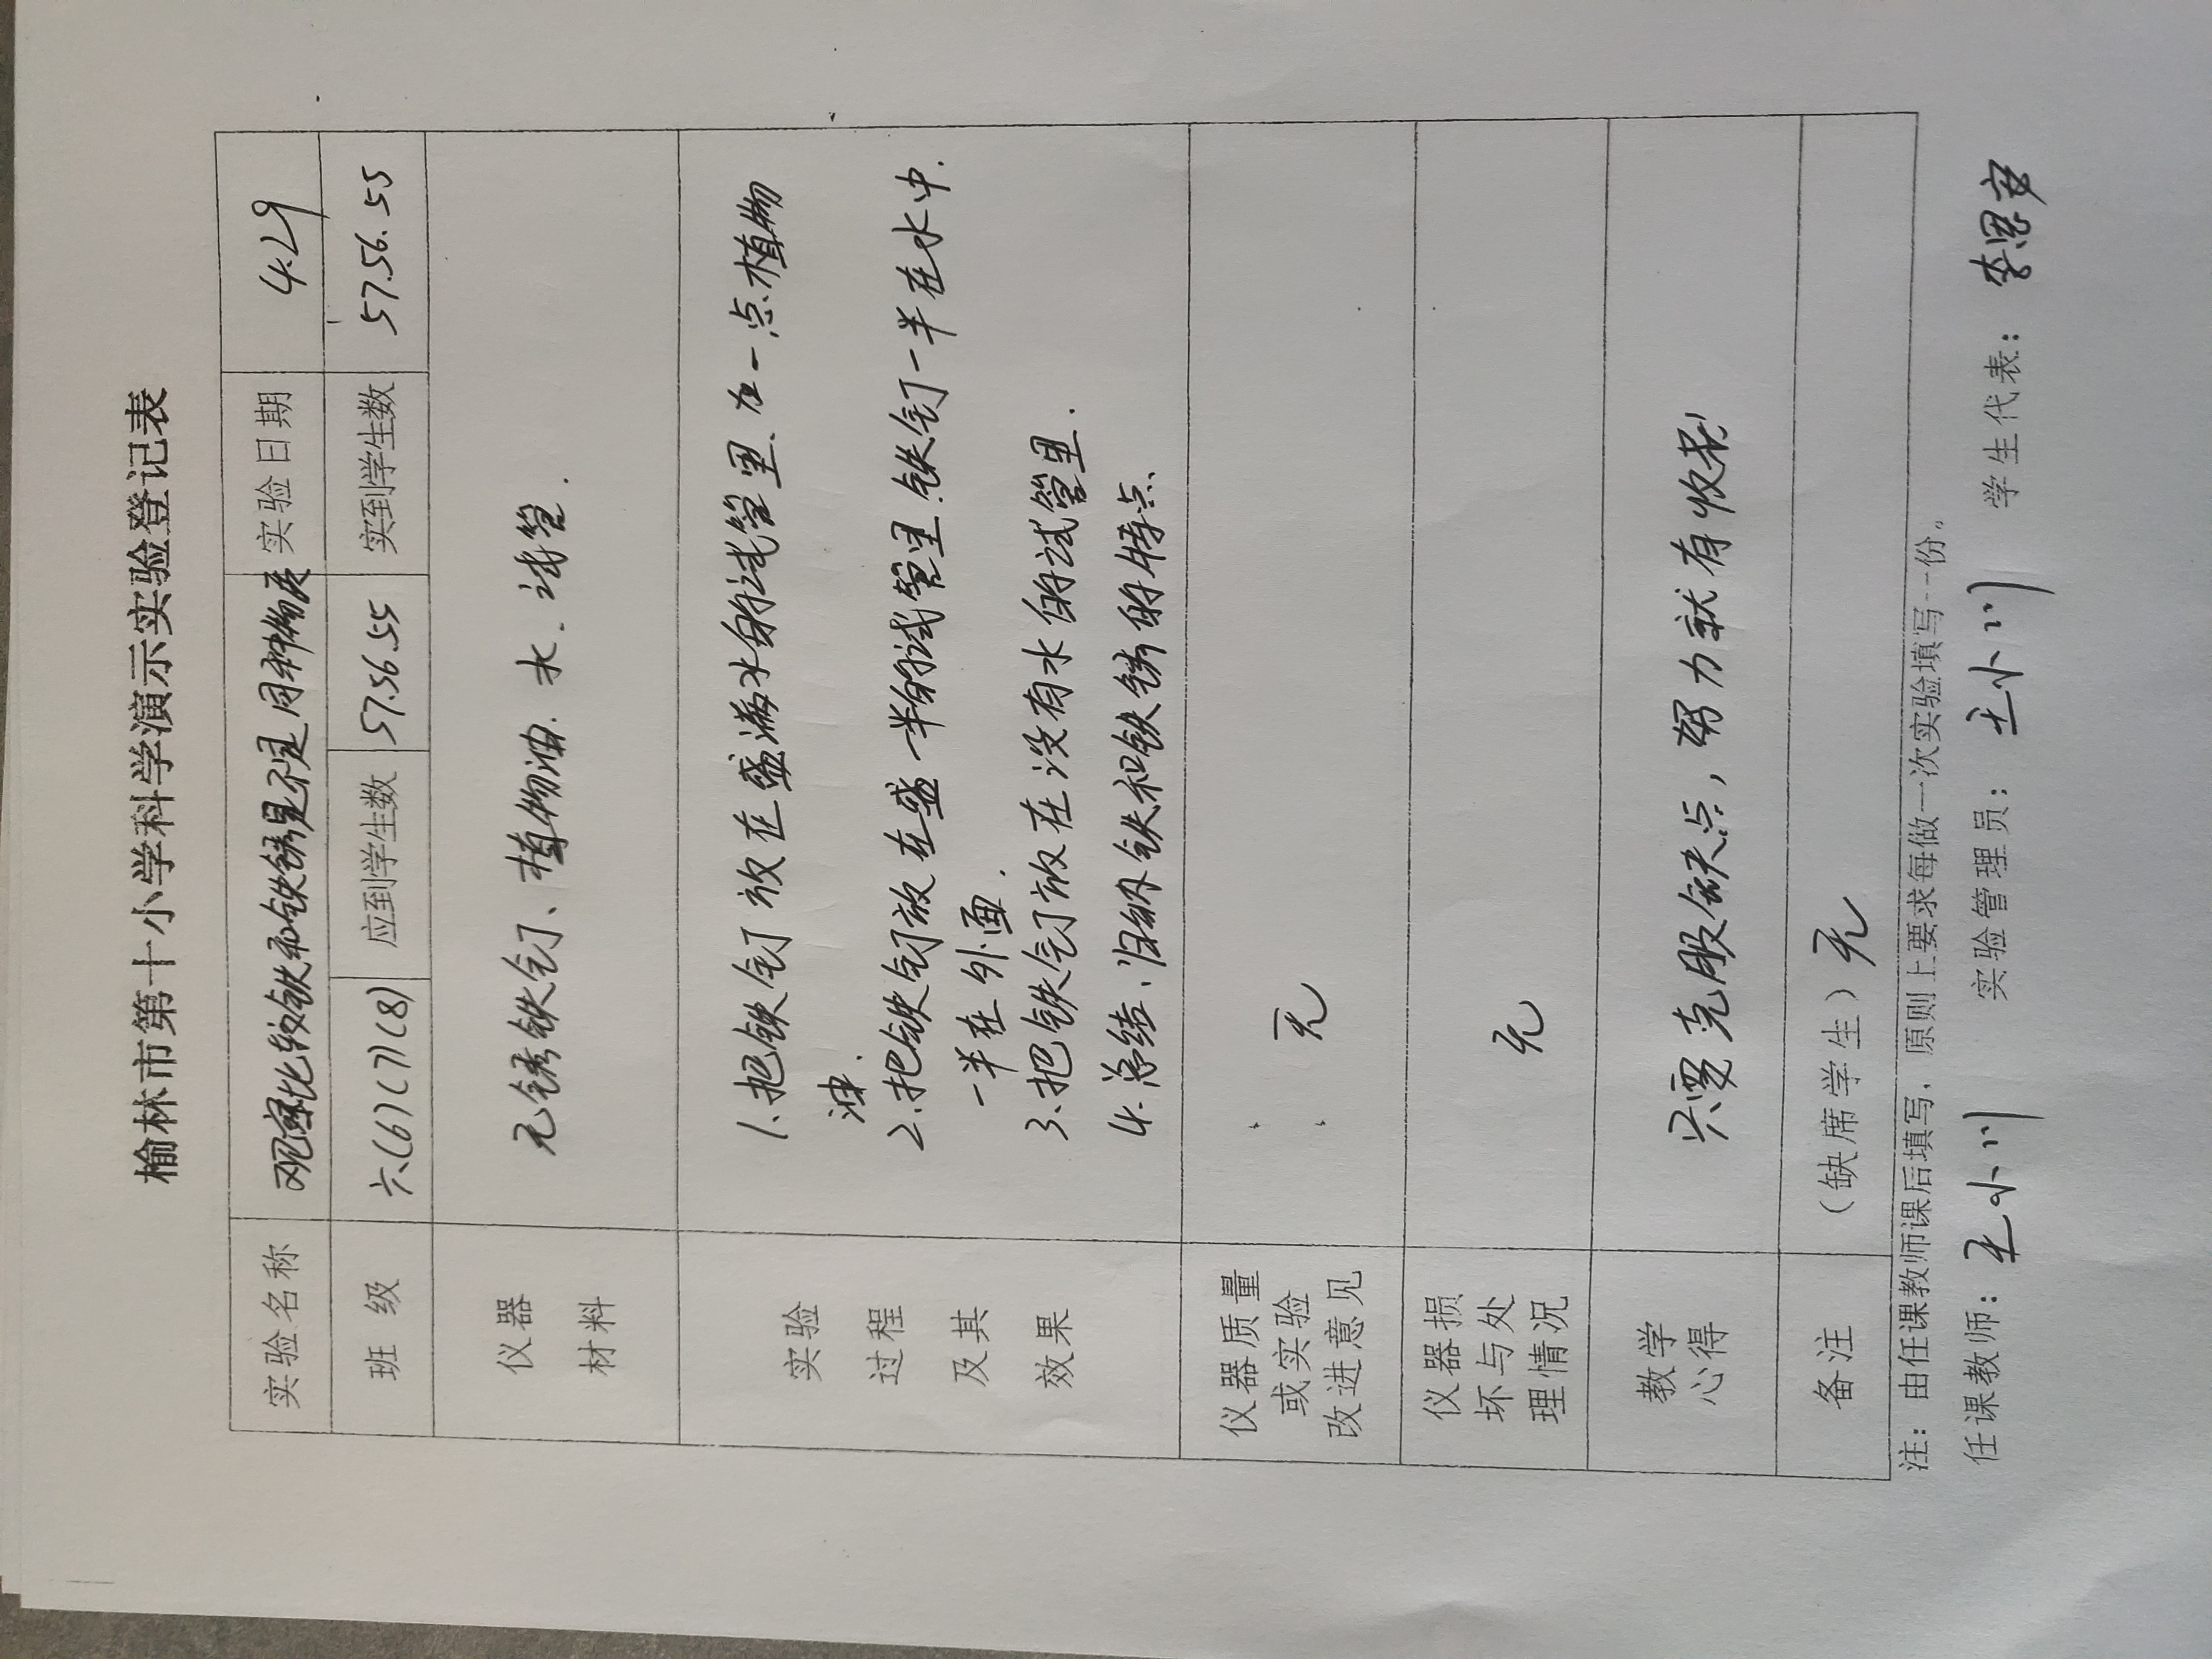 榆林市第十小学科学演示实验登记表
实验名称 观察比较铁和铁锈是不是同种物质 实验日期 4.29
班 级 六(6)(7)(8) 应到学生数 57.56.55 实到学生数 57.56.55
仪器
材料
无锈铁钉、植物油.水.试管.
实验
过程
及其
效果
1.把铁钉放在盛满水的试管里.加一点植物
油.
2.把铁钉放在盛一半的试管里.铁钉一半在水中.
一半在外面.
3.把铁钉放在没有水的试管里.
4.总结、归纳铁和铁锈的特点
仪器质量
或实验
改进意见
无
仪器损
坏与处
理情况
无
教学
心得
只要克服缺点，努力就有收获
备注 （缺席学生）无
注：由任课教师课后填写，原则上要求每做一次实验填写一份。
任课教师：王小川 实验管理员：王小川 学生代表：李思安